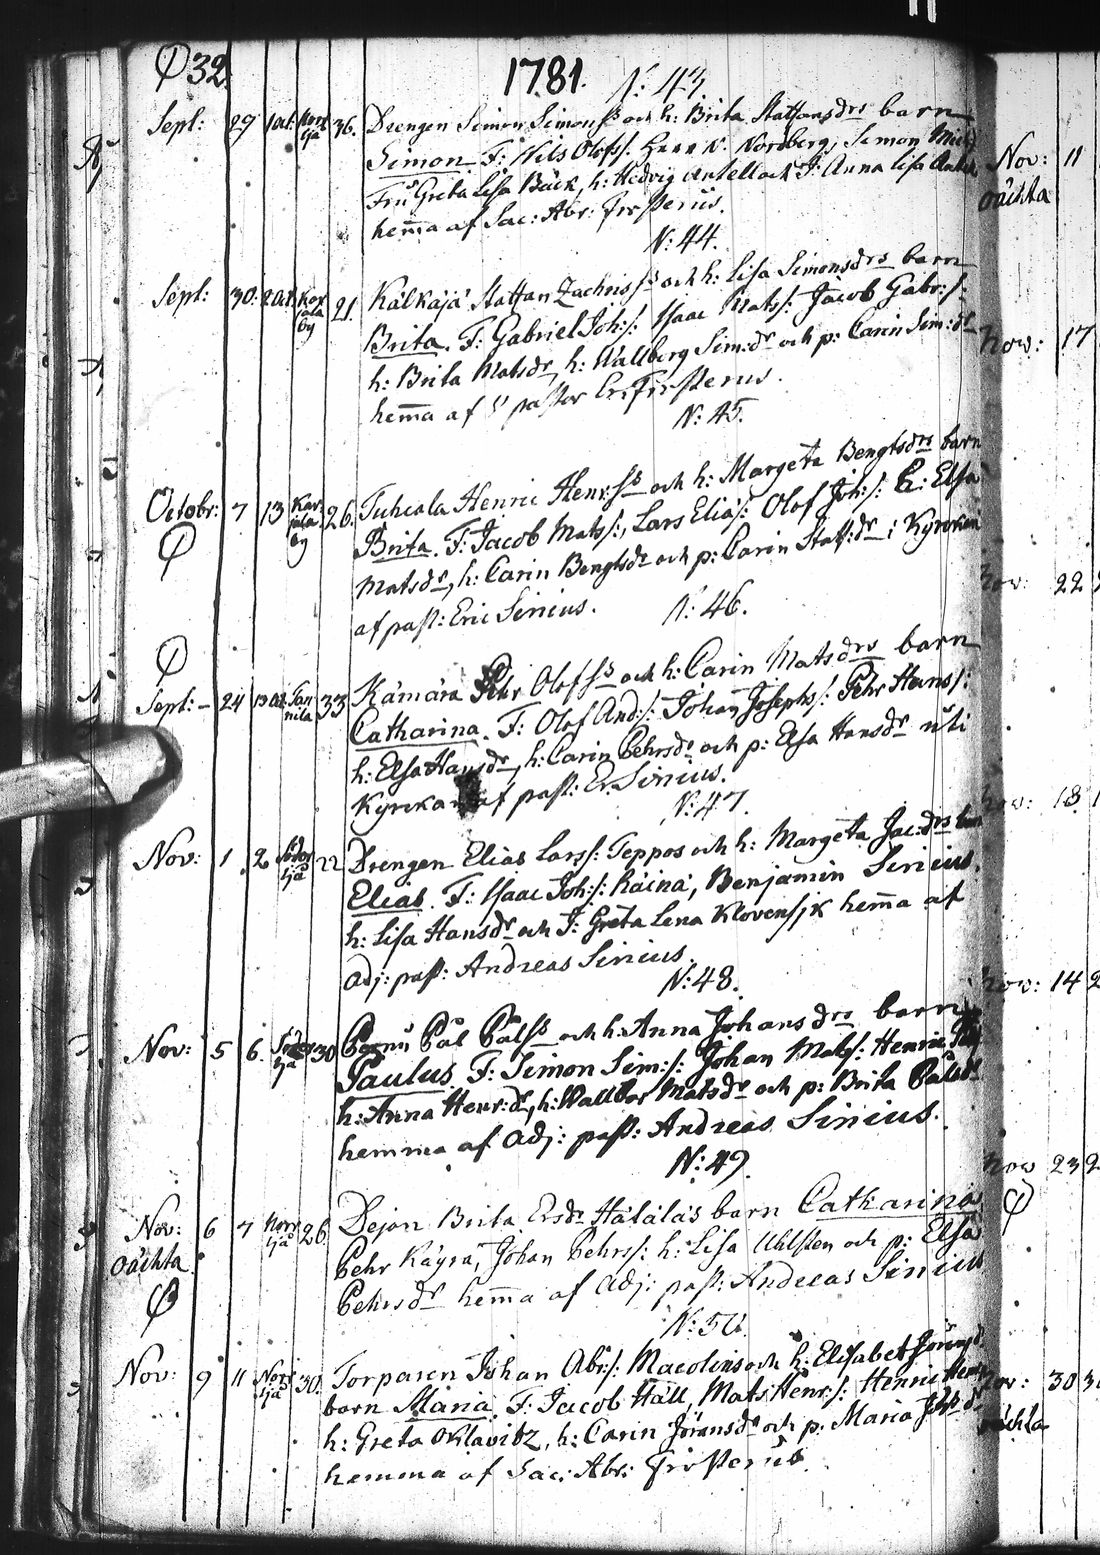 32.
1781.
N: 43.
Sept: 29 1 Oct: Norr sjå 36. Drengen Simon Simonss och h: Brita Staffansdrs barn
Simon. F: Nils Olofs/: Herr N. Nordberg, Simon Mich
Fru Greta Lisa Bäck, h: Hedvig Antell och J: Anna Lisa
hem̄a af Sac: Abr: Frosterus.
N: 44.
Sept: 30. 2 Oct. Kar jala by 21. Kälkäjä Staffan Zachriss och h: Lisa Simonsdrs barn
Brita. F: Gabriel Joh:s/: Isaac Mats/: Jacob Gabr:s/:
h: Brita Matsdr, h: Wallberg Sim:dr och p: Carin Sim:dr
hem̄a af pastor Er: Frosterus.
N: 45.
Octobr: 7 13 Kar jala by 26. Tuhcala Henric Henr:ss och h: Margeta Bengtsdrs barn
Brita. F: Jacob Mats/:, Lars Elias/: Olof Joh:s/: h: Elsa
Matsdr, h: Carin Bengtsdr och p: Carin Staf:dr i Kyrckan
af past: Eric Sirnius.
N: 46.
Sept: 24 13 Oct. Tan nila 33 Kämärä Pehr Olofss och h: Carin Matsdrs barn
Catharina. F: Olof And:s/: Johan Josephs/: Pehr Hans/:
h: Elsa Hansdr, h: Carin Pehrsdr och p: Elsa Hansdr uti
Kyrckan af past: Er: Sirnius.
N: 47.
Nov: 1 2 Söder sjå 22 Drengen Elias Lars/: Teppos och h: Margeta Jac:drs barn
Elias. F: Isaac Joh:s/: Räinä, Benjamin Sirnius.
h: Lisa Hansdr och J: Greta Lena Klovensik hem̄a af
Adj: past: Andreas Sirnius.
N: 48.
Nov: 5 6. Söder sjå 30 Pål Pålss och h: Anna Johansdrs barn
Paulus F: Simon Sim:s/: Johan Mats/: Henric
h: Anna Henr:dr, h: Wallbor Matsdr och p: Brita Pålsdr
hemma af Adj: past: Andreas Sirnius.
N: 49.
Nov: 6 7 Norr sjå 26. Dejan Brita Ersdr Hätäläs barn Catharina
oächta
Pehr Käyrä, Johan Pehrss/: h: Lisa Uhlsten och p: Elsa
Pehrsdr hem̄a af Adj: past: Andreas Sirnius
N: 50.
Nov: 9 11 Norr sjå 30. Torparen Johan Abr:s/: Macolins och h: Elisabet Jöransdr
barn Maria. F: Jacob Häll, Mats Henr:s/: Henric
h: Greta Oklavitz, h: Carin Jöransdr och p: Maria
hemma af Sac: Abr: Frosterus.
Nov: 11
oächta
Nov: 17
Nov: 22
Nov: 18
Nov: 14
Nov 23
Nov: 30
oächta